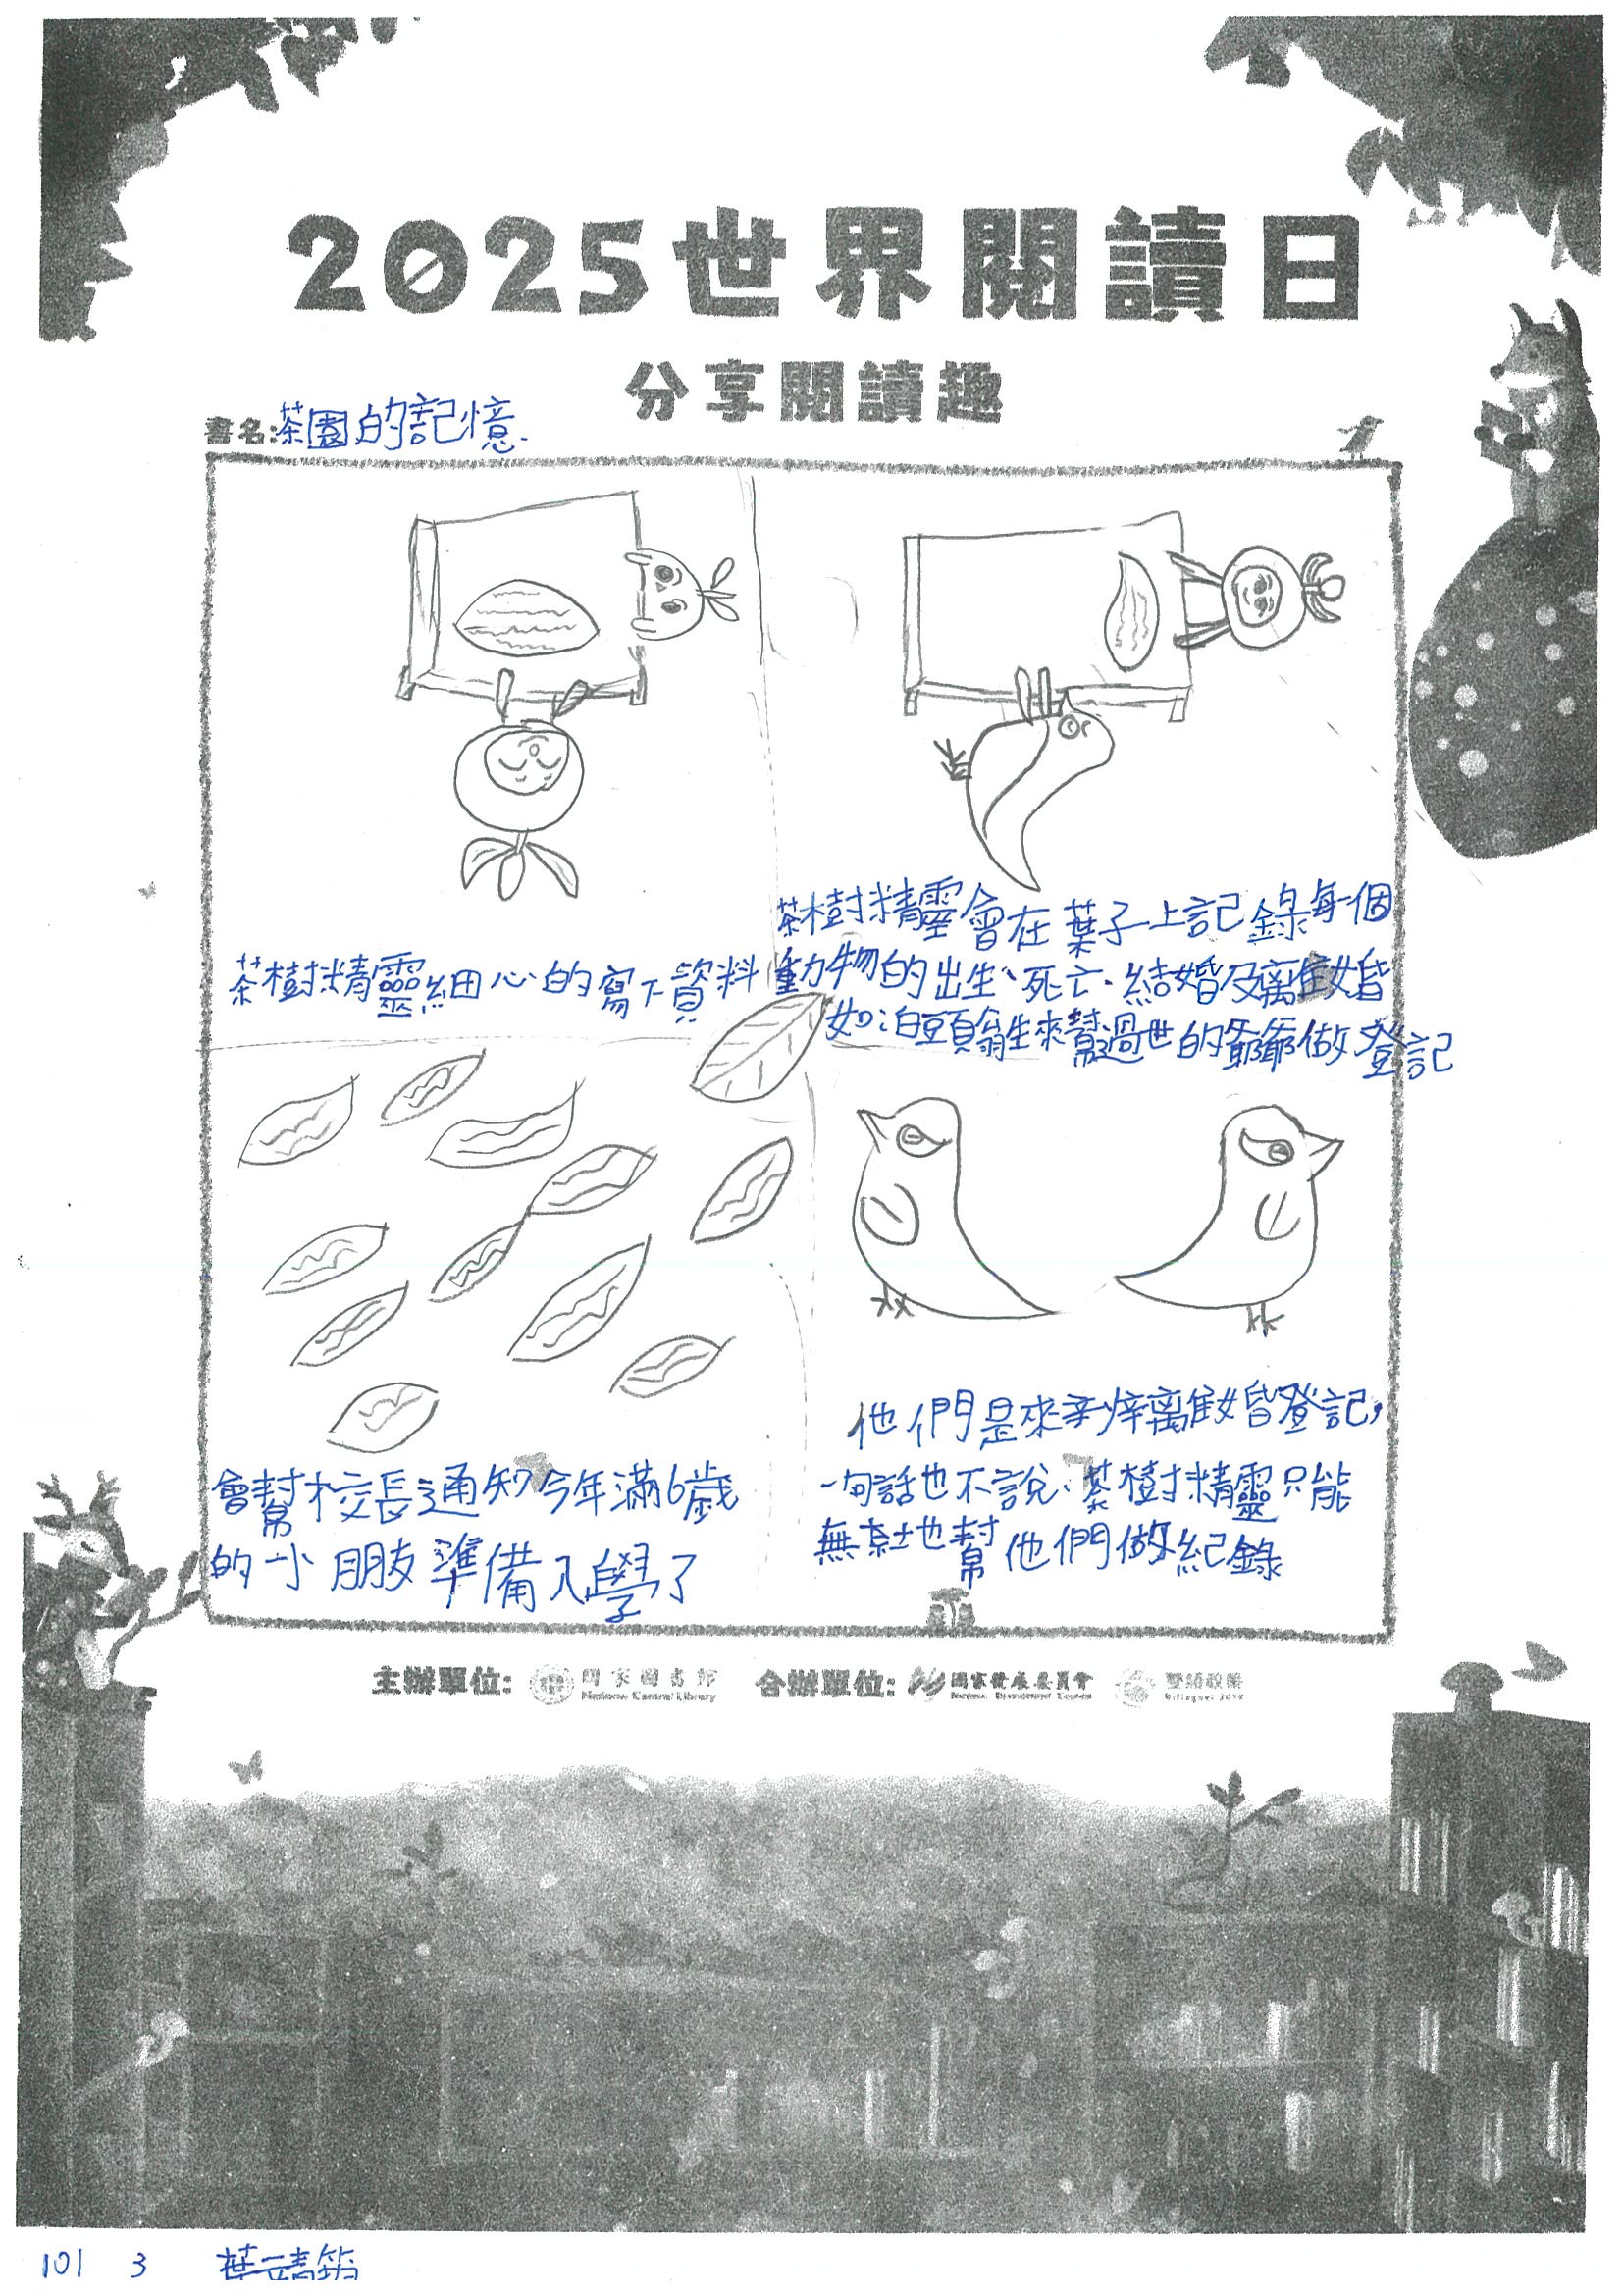 2025世界閱讀日
分享閱讀趣
書名:茶園的記憶
茶樹精靈細心的寫下資料
茶樹精靈會在葉子上記錄每個
動物的出生、死亡、結婚及離婚
如:白頭翁先生來幫過世的爺爺做登記
會幫校長通知今年滿6歲
的小朋友準備入學了
他們是來辦離婚登記,
一句話也不說、茶樹精靈只能
無奈地幫他們做紀錄
主辦單位: 國家圖書館 合辦單位: 國家發展委員會 雙語政策
National Central Library National Development Council Bilingual 2030
101 3 葉靖筠